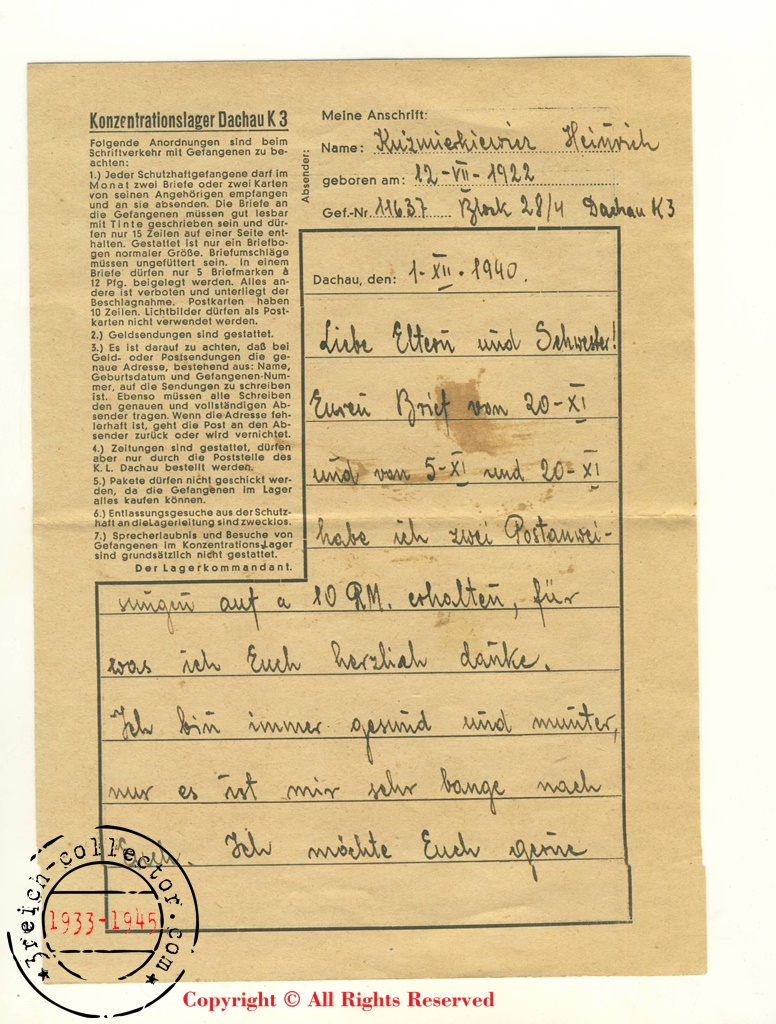 Konzentrationslager Dachau K 3
Folgende Anordnungen sind beim
Schriftverkehr mit Gefangenen zu be-
achten:
1.) Jeder Schutzhaftgefangene darf im
Monat zwei Briefe oder zwei Karten
von seinen Angehörigen empfangen
und an sie absenden. Die Briefe an
die Gefangenen müssen gut lesbar
mit Tinte geschrieben sein und dür-
fen nur 15 Zeilen auf einer Seite ent-
halten. Gestattet ist nur ein Briefbo-
gen normaler Größe. Briefumschläge
müssen ungefüttert sein. In einem
Briefe dürfen nur 5 Briefmarken à
12 Pfg. beigelegt werden. Alles an-
dere ist verboten und unterliegt der
Beschlagnahme. Postkarten haben
10 Zeilen. Lichtbilder dürfen als Post-
karten nicht verwendet werden.
2.) Geldsendungen sind gestattet.
3.) Es ist darauf zu achten, daß bei
Geld- oder Postsendungen die ge-
naue Adresse, bestehend aus: Name,
Geburtsdatum und Gefangenen-Num-
mer, auf die Sendungen zu schreiben
ist. Ebenso müssen alle Schreiben
den genauen und vollständigen Ab-
sender tragen. Wenn die Adresse feh-
lerhaft ist, geht die Post an den Ab-
sender zurück oder wird vernichtet.
4.) Zeitungen sind gestattet, dürfen
aber nur durch die Poststelle des
K. L. Dachau bestellt werden.
5.) Pakete dürfen nicht geschickt wer-
den, da die Gefangenen im Lager
alles kaufen können.
6.) Entlassungsgesuche aus der Schutz-
haft an die Lagerleitung sind zwecklos.
7.) Sprecherlaubnis und Besuche von
Gefangenen im Konzentrations-Lager
sind grundsätzlich nicht gestattet.
Der Lagerkommandant.
Absender:
Meine Anschrift:
Name: Kuźmierkiewicz Heinrich
geboren am: 12-VII-1922
Gef.-Nr. 11637 Block 28/4 Dachau K3
Dachau, den: 1-XII-1940.
Liebe Eltern und Schwester!
Euren Brief von 20-XI
und von 5-XI und 20-XI
habe ich zwei Postanwei-
sungen auf a 10 RM. erhalten, für
was ich Euch herzlich danke.
Ich bin immer gesund und munter,
nur es ist mir sehr bange nach
Euch. Ich möchte Euch gerne
3reich-collector.com
1933-1945
Copyright © All Rights Reserved